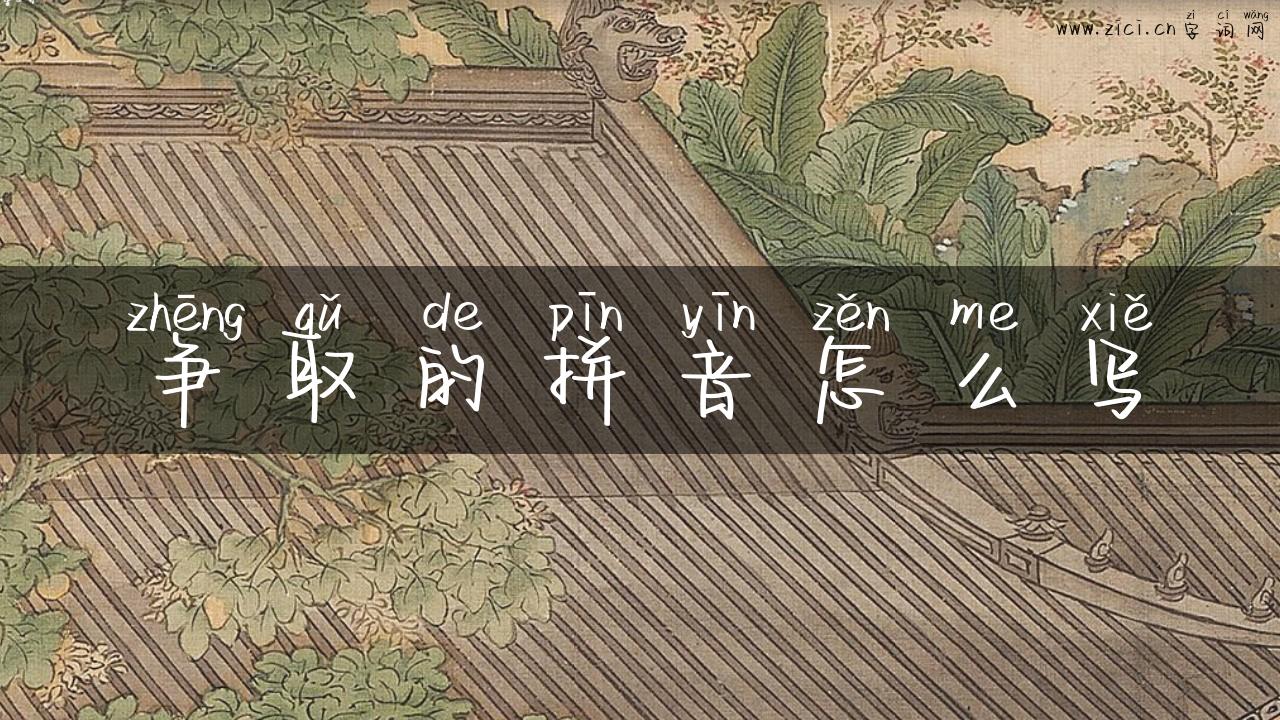 zì cí wǎng
www.zici.cn 字词网
zhēng qǔ de pīn yīn zěn me xiě
争取的拼音怎么写